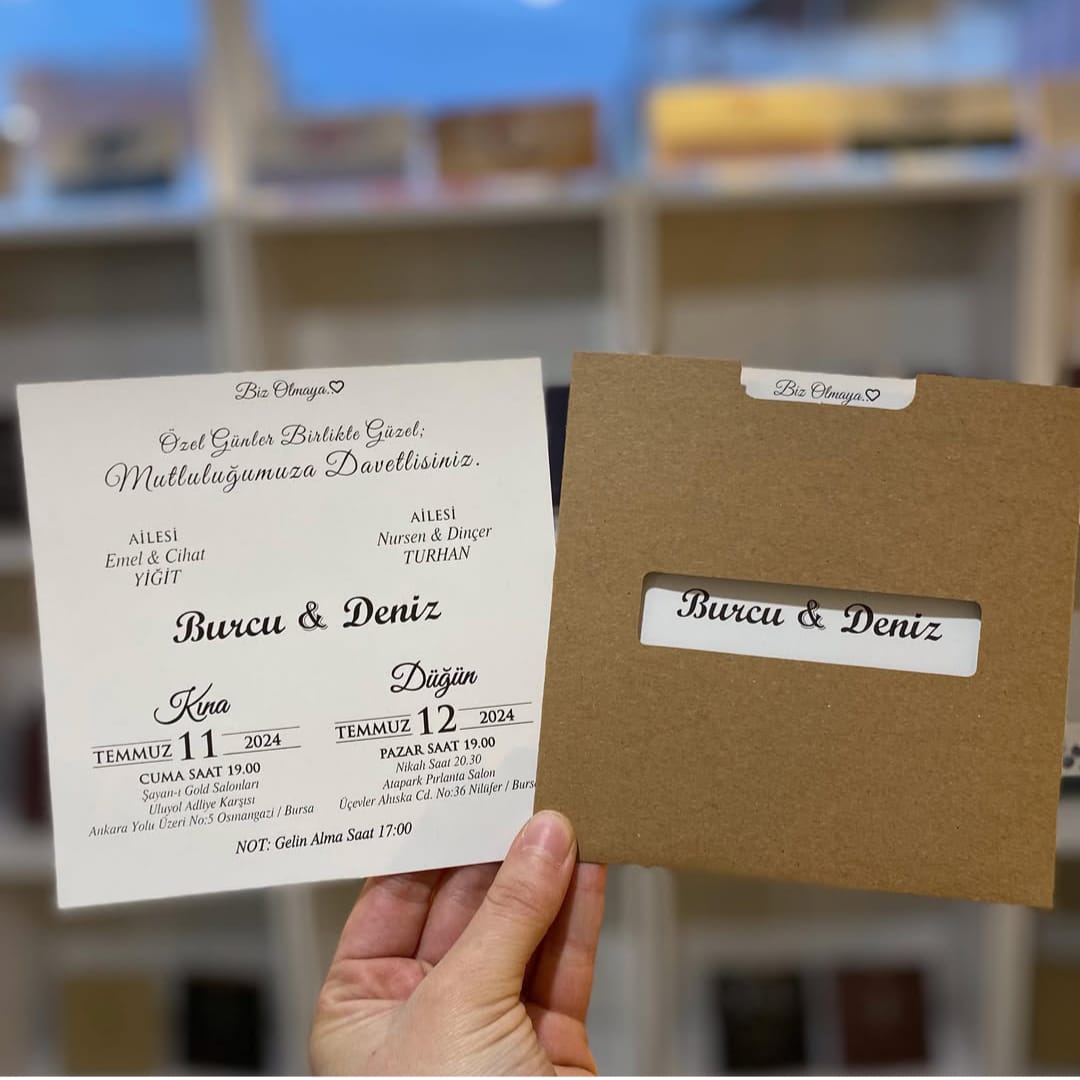 Biz Olmaya.♡
Özel Günler Birlikte Güzel;
Mutluluğumuza Davetlisiniz.
AİLESİ
Emel & Cihat
YİĞİT
AİLESİ
Nursen & Dinçer
TURHAN
Burcu & Deniz
Kına
TEMMUZ 11 2024
CUMA SAAT 19.00
Şayan-ı Gold Salonları
Uluyol Adliye Karşısı
Ankara Yolu Üzeri No:5 Osmangazi / Bursa
Düğün
TEMMUZ 12 2024
PAZAR SAAT 19.00
Nikah Saat 20.30
Atapark Pırlanta Salon
Üçevler Ahıska Cd. No:36 Nilüfer / Burs
NOT: Gelin Alma Saat 17:00
Biz Olmaya.♡
Burcu & Deniz